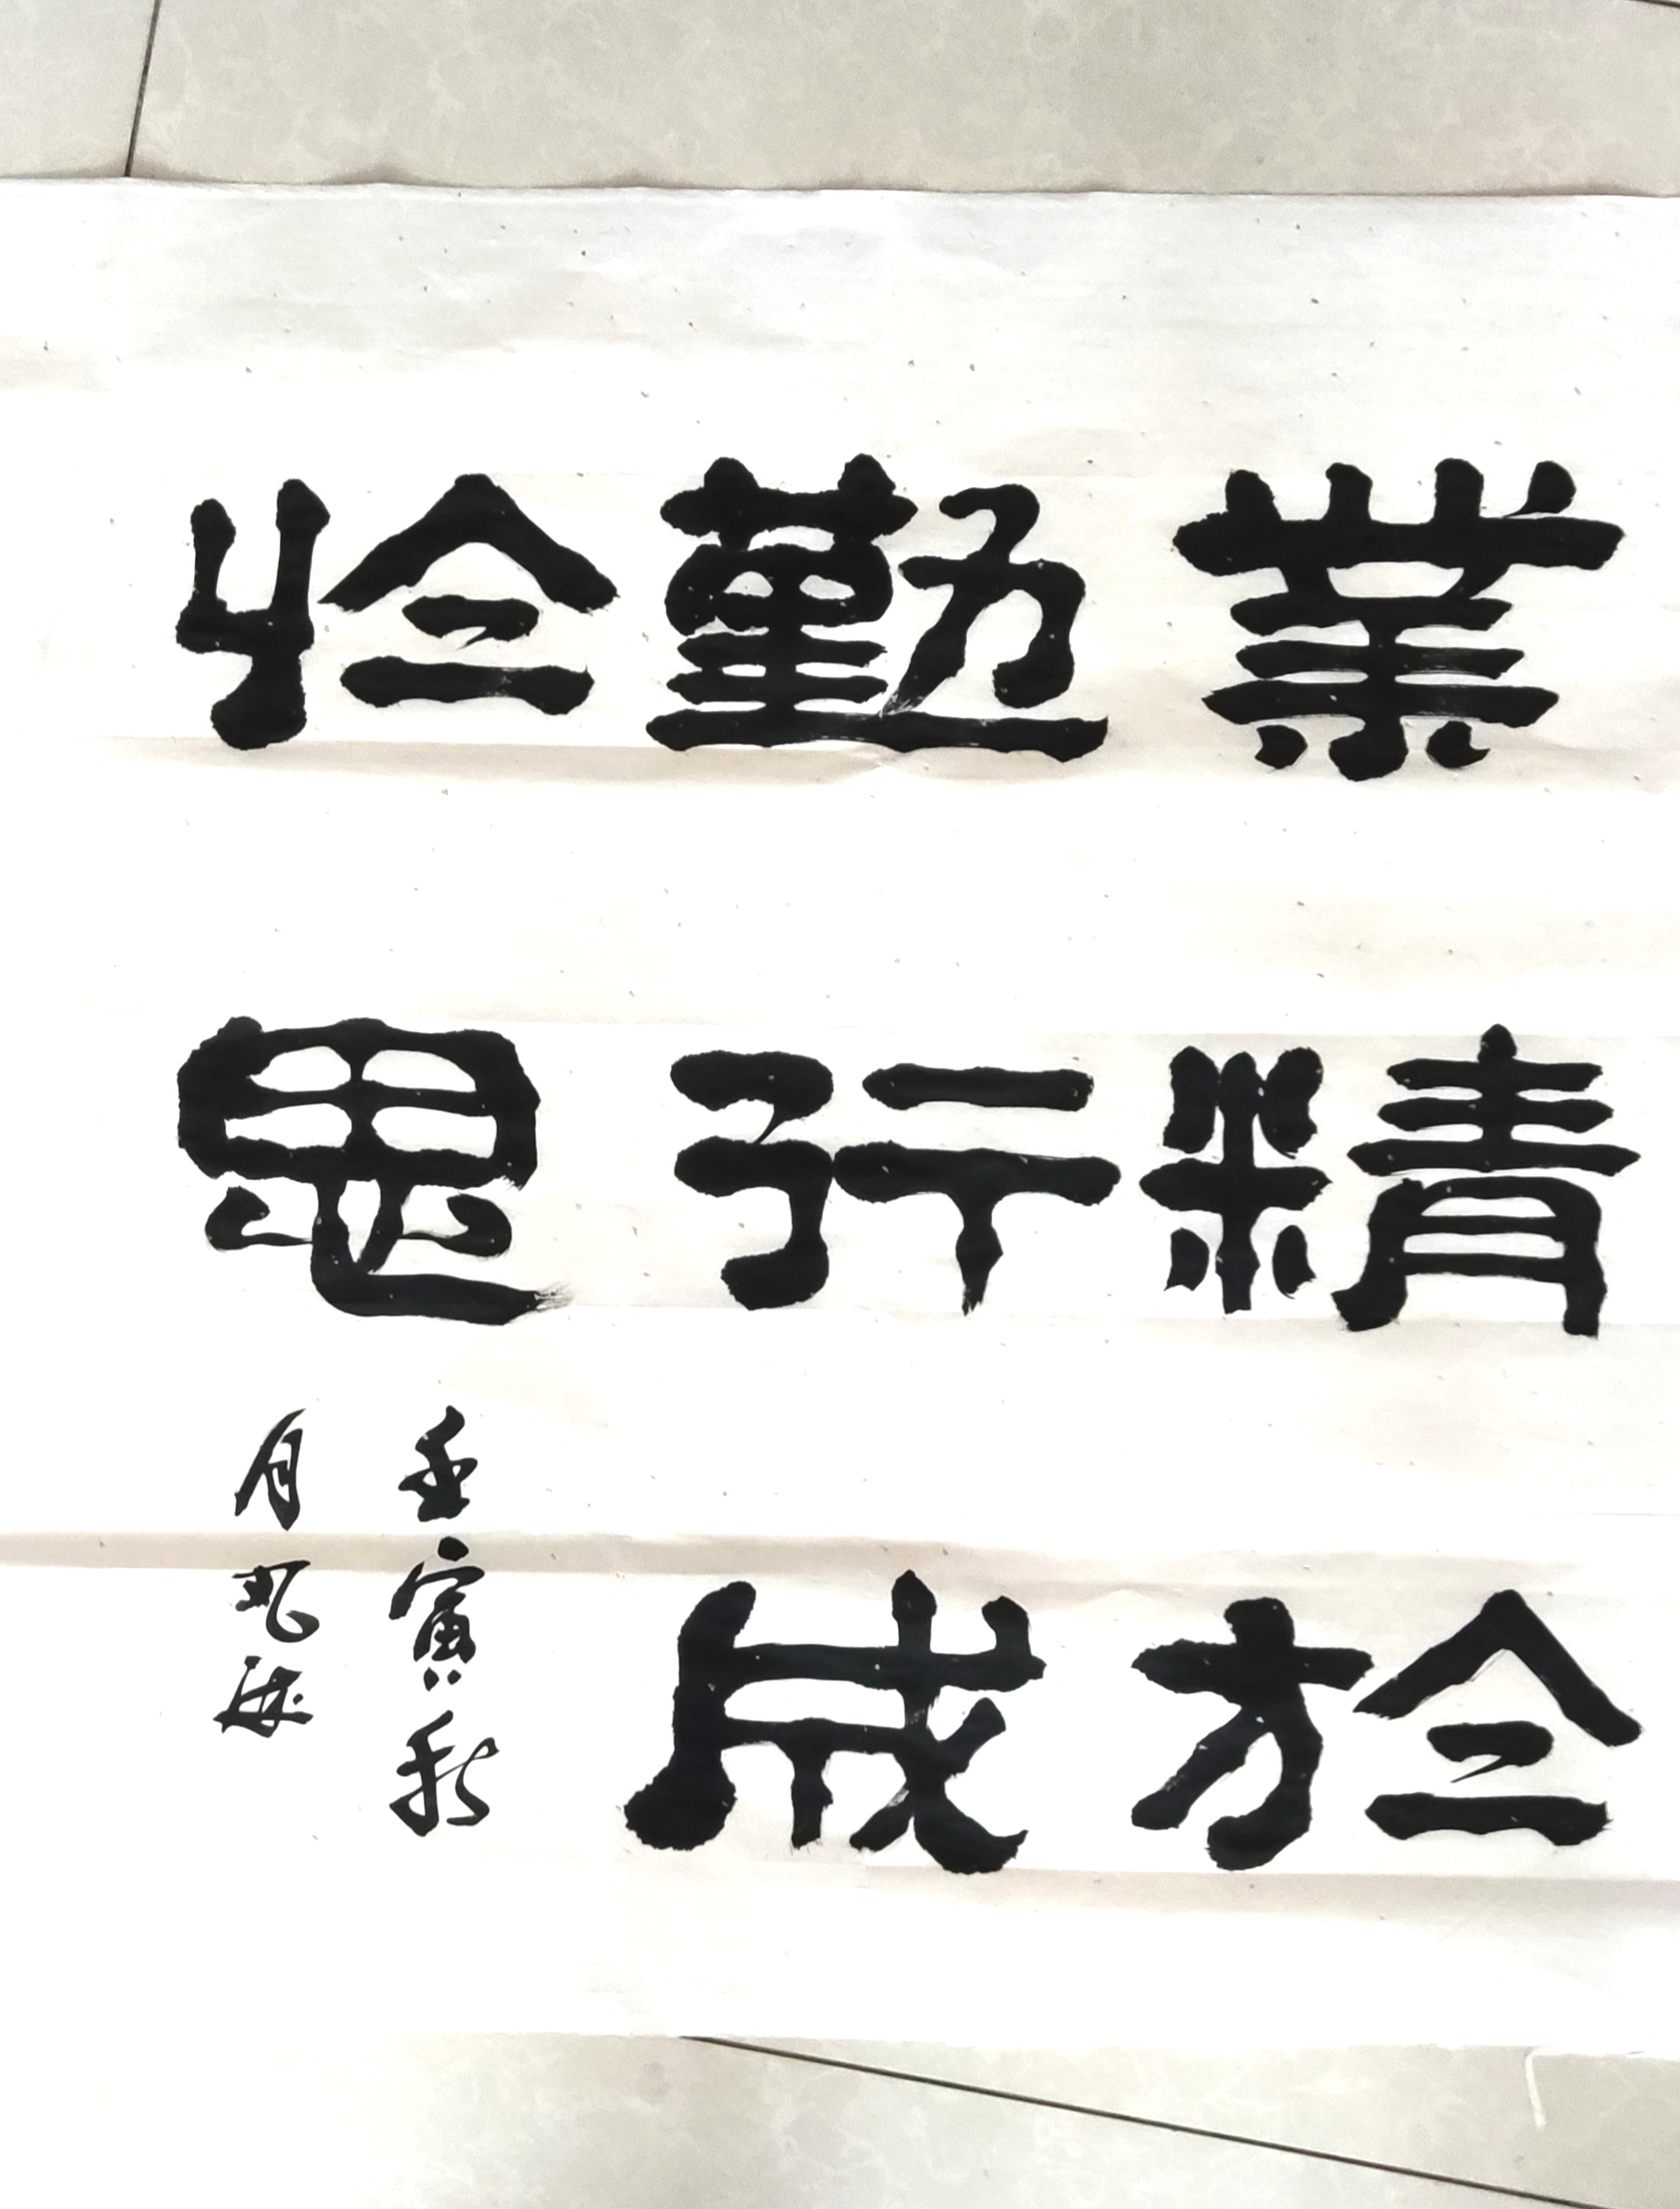 業精於
勤行成
於思
壬寅秋
月